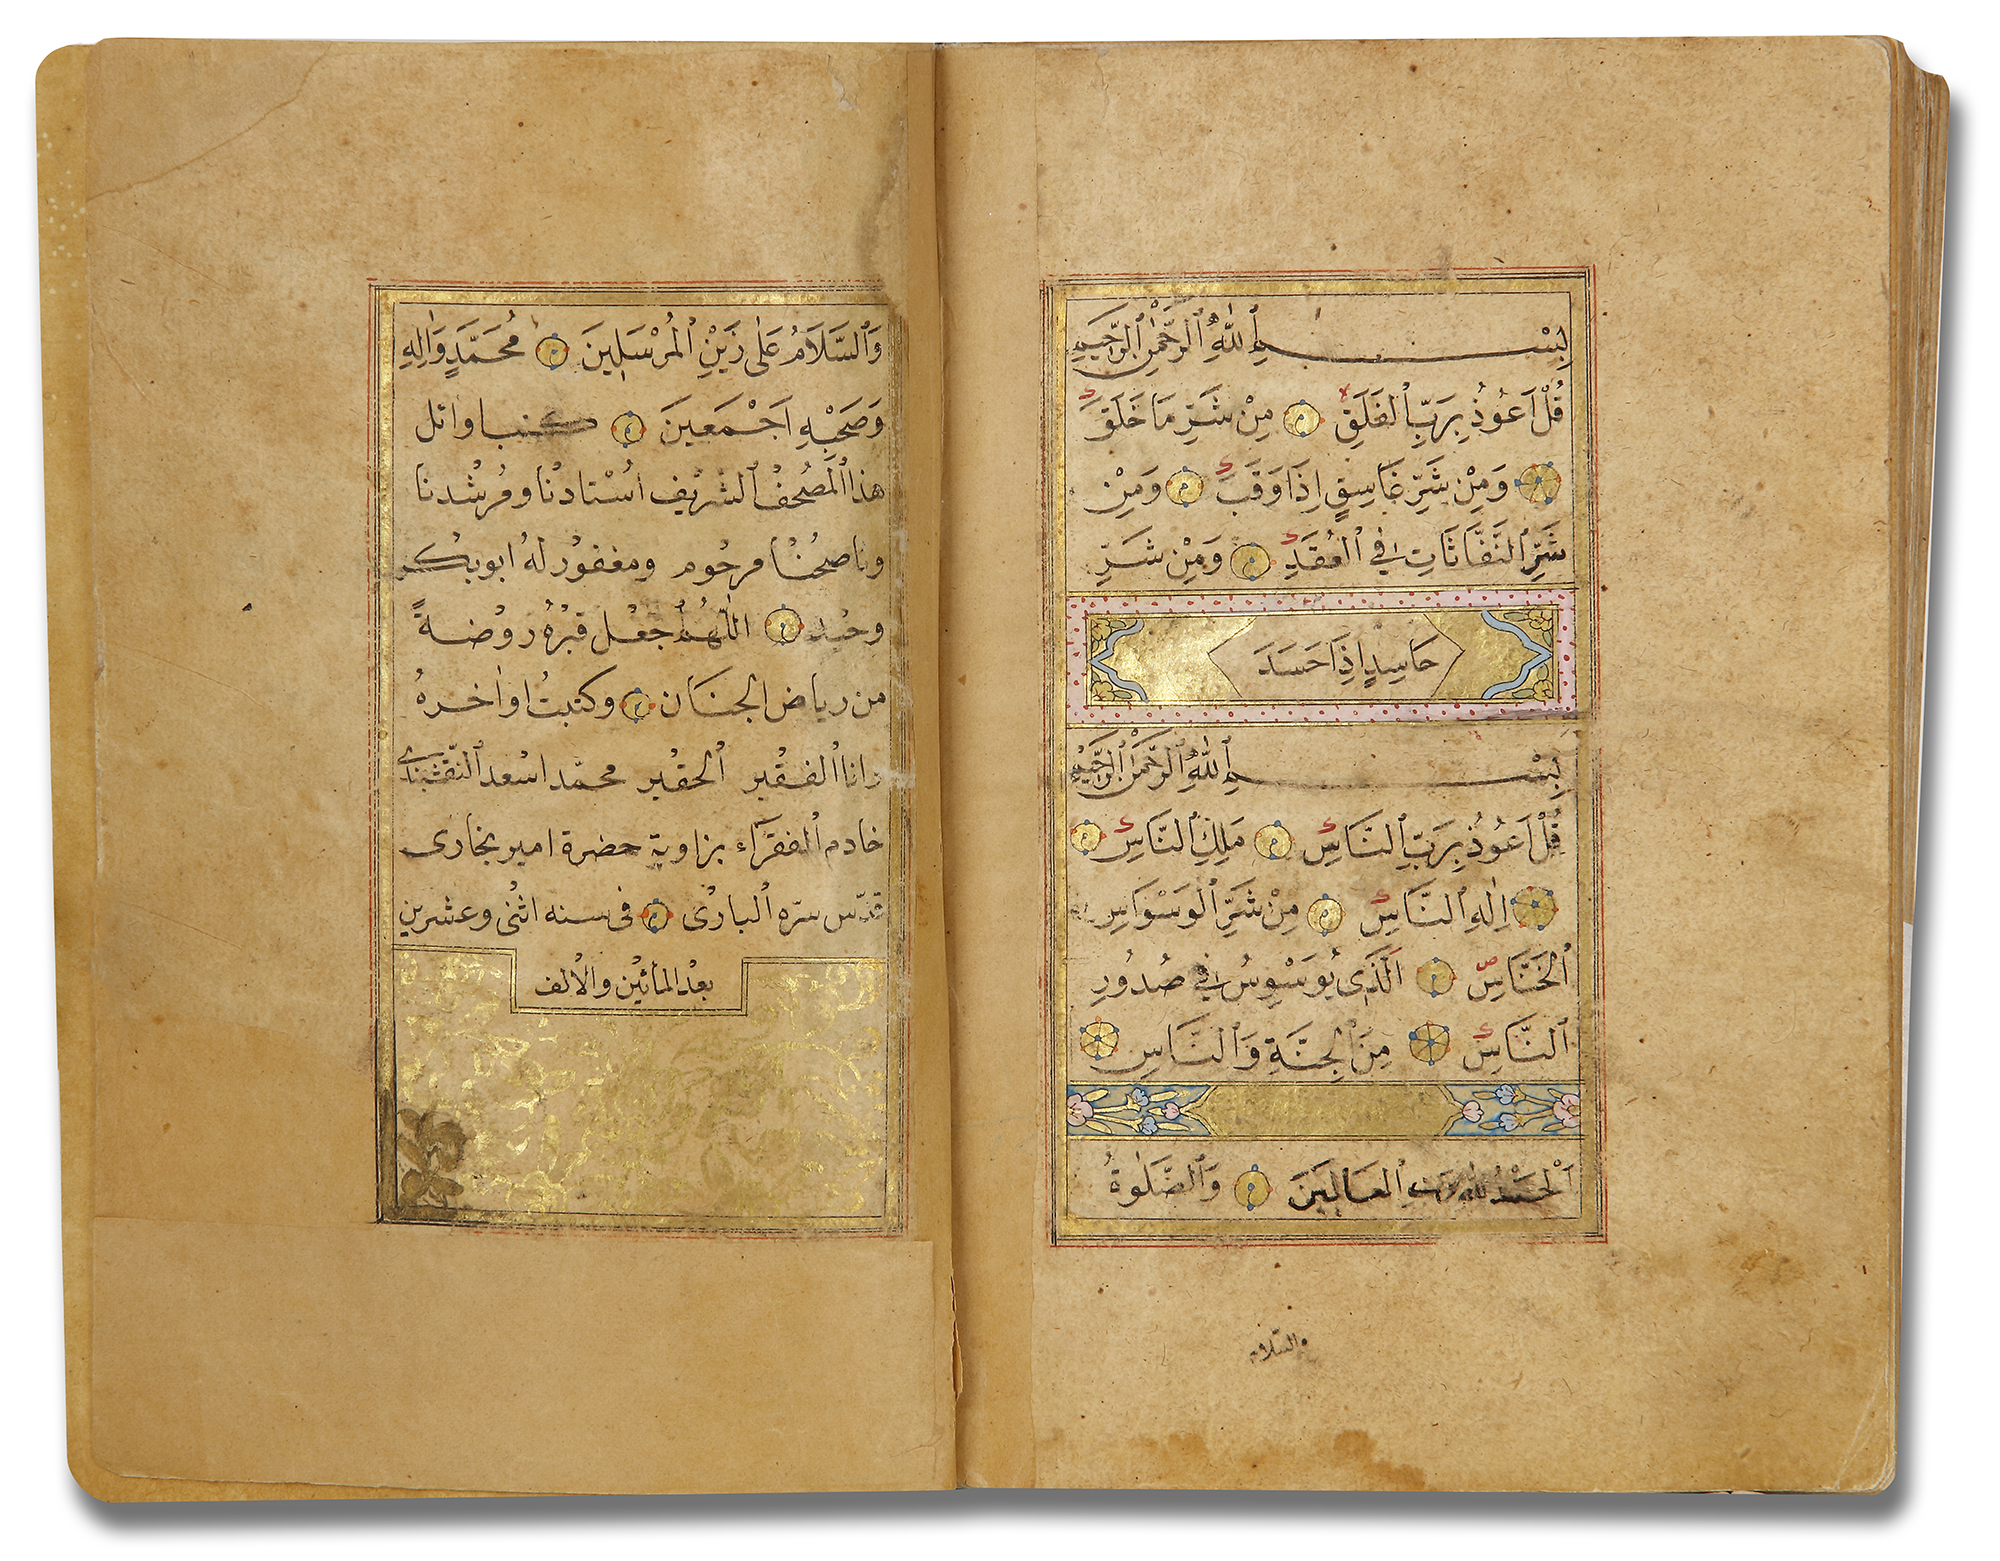 بِسْمِ ٱللّٰهِ ٱلرَّحْمٰنِ ٱلرَّحِيمِ
قُلْ اَعُوذُ بِرَبِّ ٱلْفَلَقِ مِنْ شَرِّ مَا خَلَقَ
وَمِنْ شَرِّ غَاسِقٍ اِذَا وَقَبَ وَمِنْ
شَرِّ ٱلنَّفَّاثَاتِ فِي ٱلْعُقَدِ وَمِنْ شَرِّ
حَاسِدٍ اِذَا حَسَدَ
بِسْمِ ٱللّٰهِ ٱلرَّحْمٰنِ ٱلرَّحِيمِ
قُلْ اَعُوذُ بِرَبِّ ٱلنَّاسِ مَلِكِ ٱلنَّاسِ
اِلٰهِ ٱلنَّاسِ مِنْ شَرِّ ٱلْوَسْوَاسِ
ٱلْخَنَّاسِ ٱلَّذِي يُوَسْوِسُ فِي صُدُورِ
ٱلنَّاسِ مِنَ ٱلْجِنَّةِ وَٱلنَّاسِ
اَلْحَمْدُ لِلّٰهِ رَبِّ ٱلْعَالَمِينَ وَٱلصَّلٰوةُ
والسلام
وَٱلسَّلَامُ عَلٰى زَيْنِ ٱلْمُرْسَلِينَ مُحَمَّدٍ وَاٰلِهِ
وَصَحْبِهِ اَجْمَعِينَ اوائل
هذا ٱلمصحف ٱلشريف اُستادنا ومُرشدنا
وناصحُنا مرحُوم ومغفور لهُ ابو بكر
وحيد اللّٰهم ٱجعل قبرهُ روضةً
من رياض الجنان وكتبتُ اواخرهُ
وانا ٱلفقير ٱلحقير محمّد اسعد ٱلنّقشبندى
خادم ٱلفقرآء بزاوية حضرة امير بخارى
قدّس سرّه ٱلبارى فى سنه اثنى وعشرين
بعد المأتين والالف